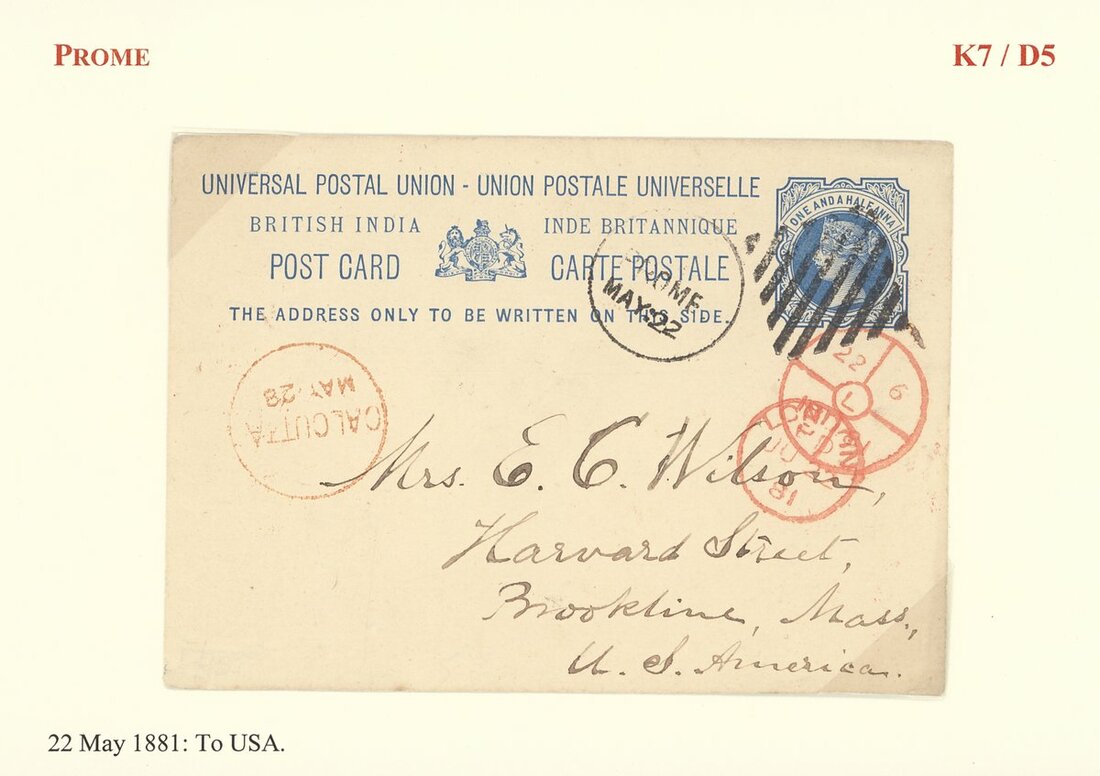 PROME
K7 / D5
UNIVERSAL POSTAL UNION - UNION POSTALE UNIVERSELLE
BRITISH INDIA
INDE BRITANNIQUE
POST CARD
CARTE POSTALE
THE ADDRESS ONLY TO BE WRITTEN ON THIS SIDE.
ONE AND A HALF ANNA
PROME
MAY 22
CALCUTTA
MAY 28
22
6
L
LONDON
JU
81
Mrs. E. C. Wilson,
Harvard Street,
Brookline, Mass.,
U. S. America.
22 May 1881: To USA.